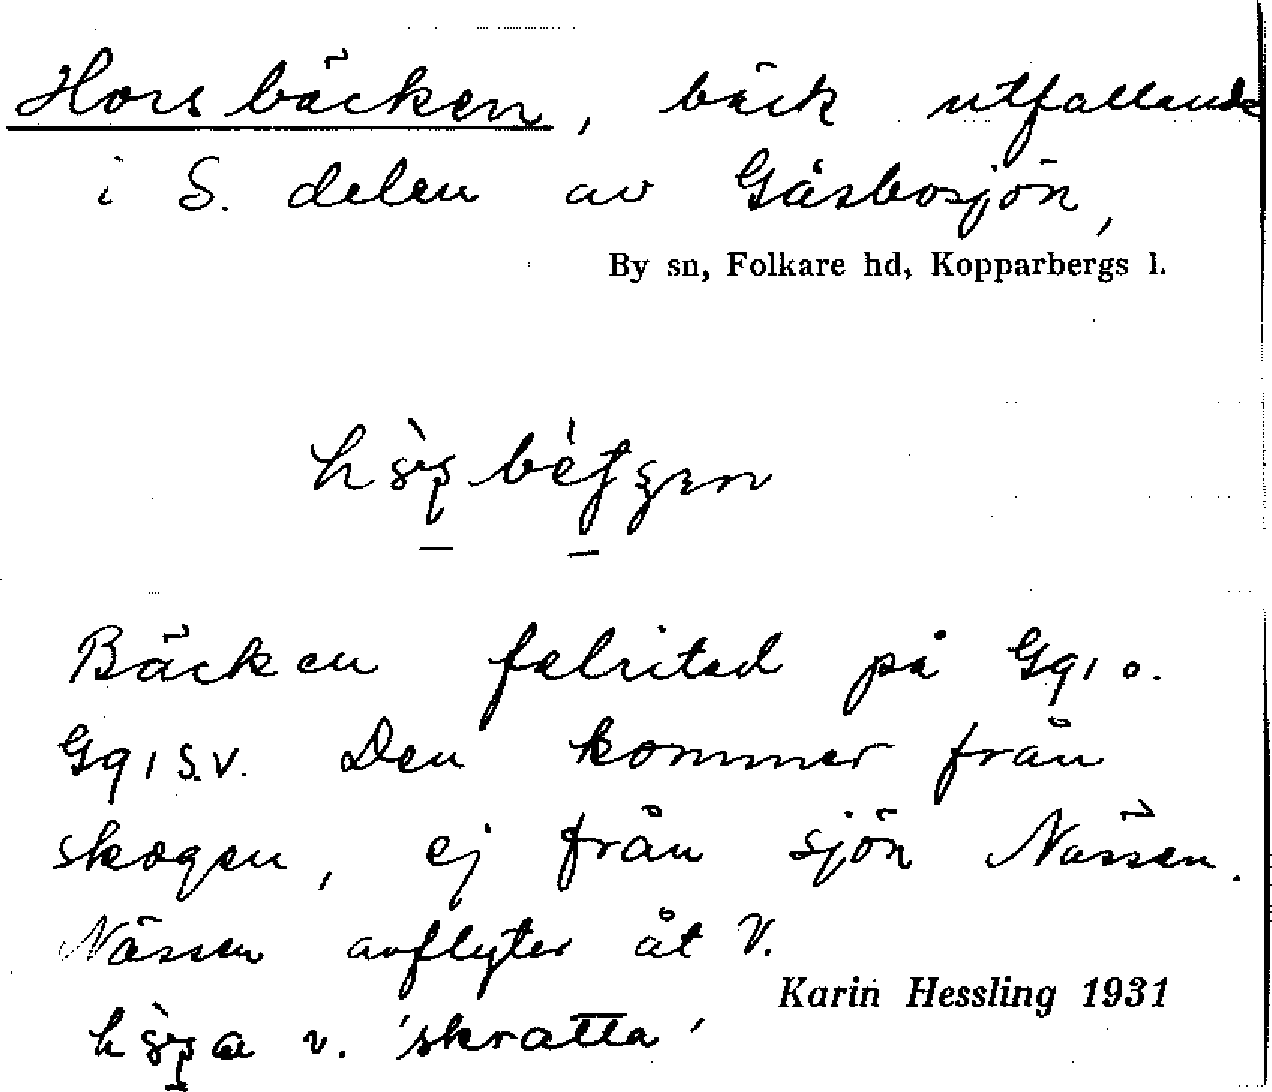 Horsbäcken, bäck utfallande
i S. delen av Gåsbosjön,
By sn, Folkare hd, Kopparbergs l.
Bäcken felritad på Gq1 o.
Gq1 S.V. Den kommer från
skogen, ej från sjön Nässen.
Nässen avflyter åt V.
Karin Hessling 1931
v. 'skratta'